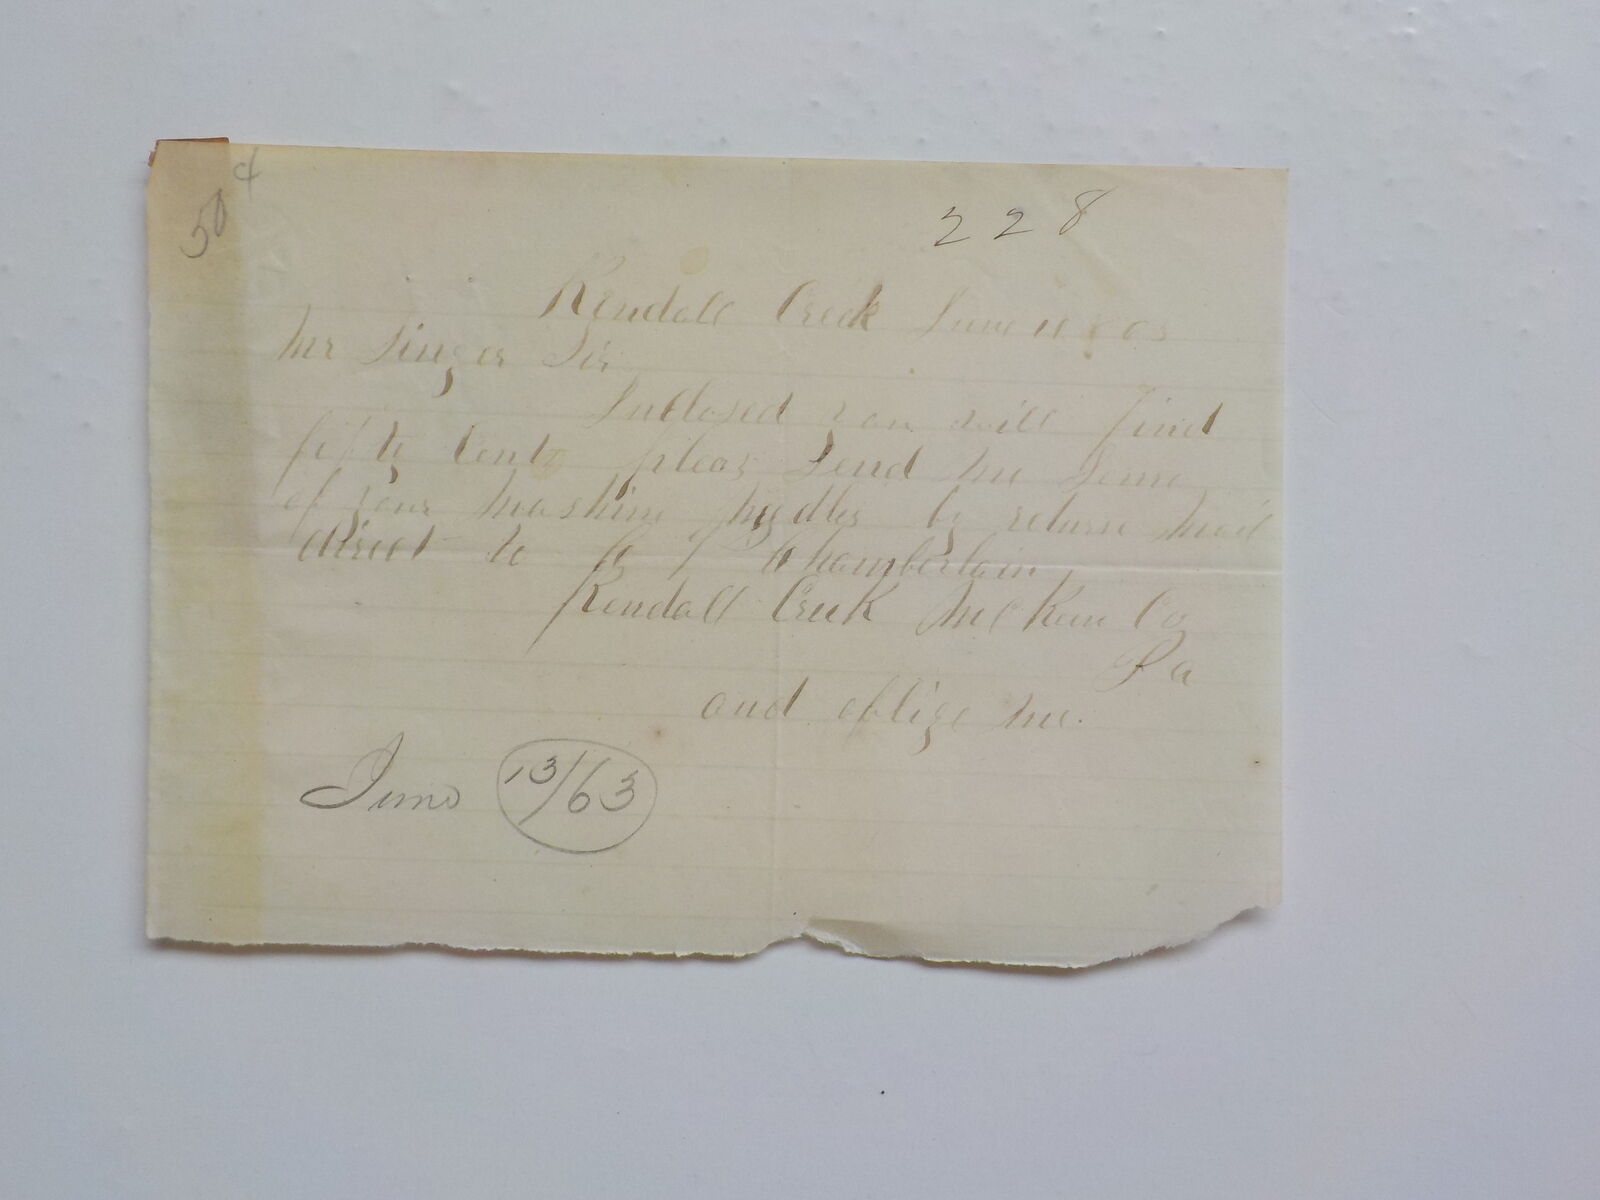 50 c
228
Kendall Creek June 11
Mr Singer Sir
Inclosed you will find
fifty cents pleas send me some
of your mashine needles by return mail
direct to Chamberlain
Kendall Creek McKean Co
Pa
and oblige me.
June 13/63